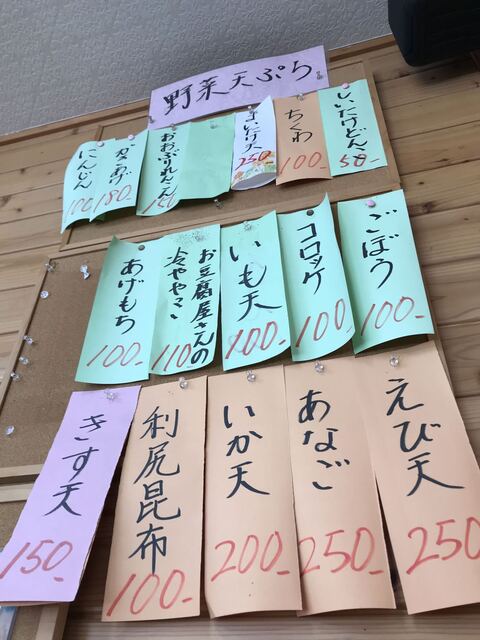 野菜天ぷら
しいたけどんこ
50-
ちくわ
100-
まいたけ天
250-
おおぶりれんこん
かきあげ
180-
にんじん
100
ごぼう
100-
コロッケ
100-
いも天
100-
お豆腐屋さんの
冷ややっこ
110-
あげもち
100-
えび天
250
あなご
250-
いか天
200-
利尻昆布
100-
きす天
150-